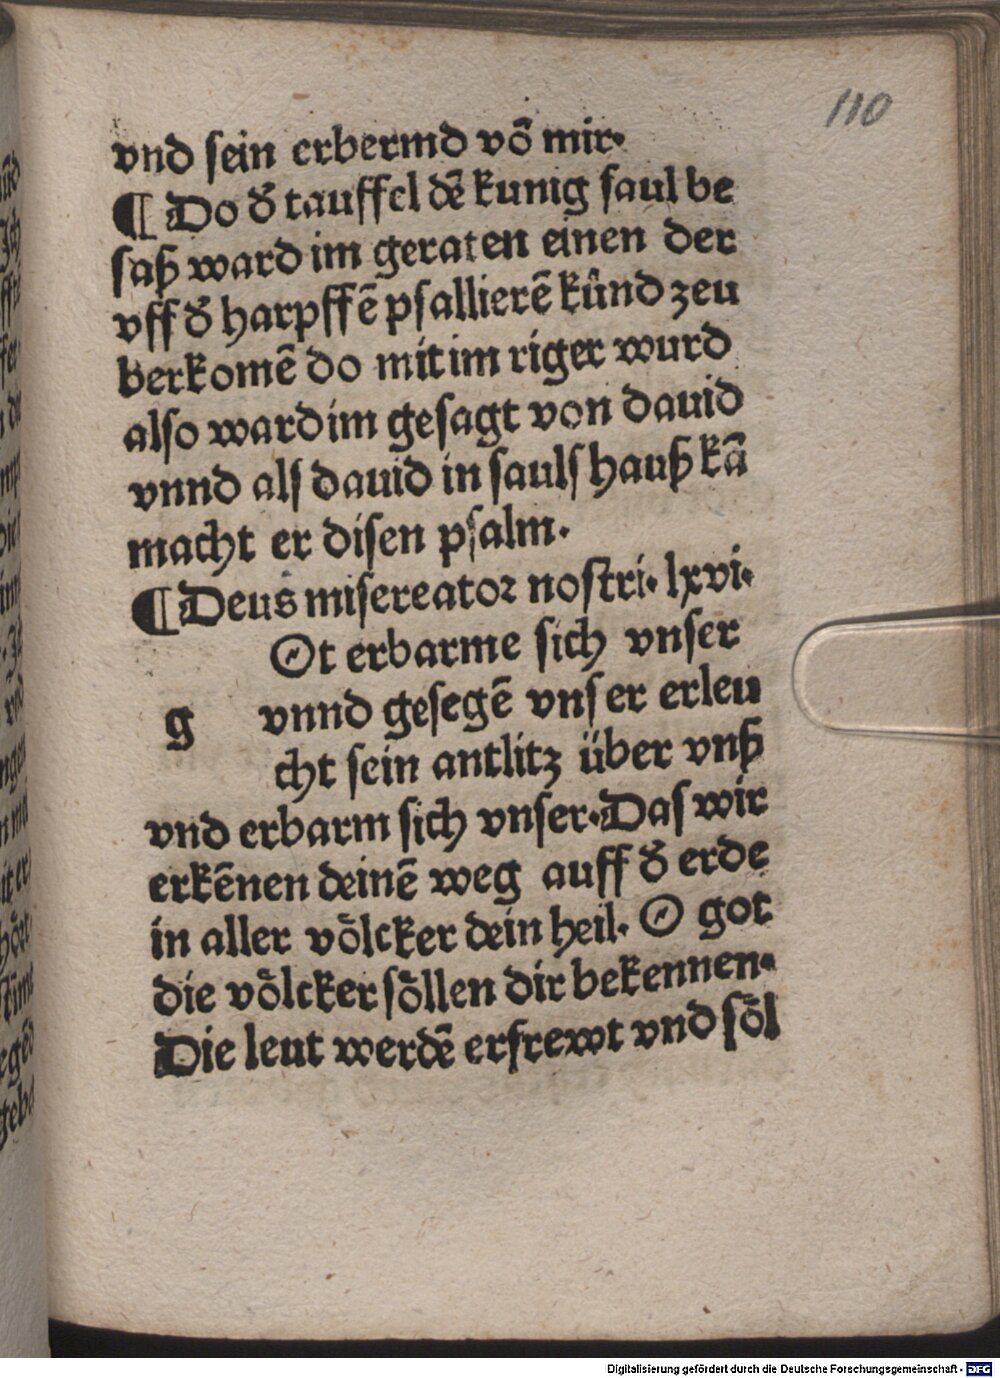 110
vnd sein erbermd võ mir·
¶ Do d̕ tauffel dẽ kunig saul be
saß ward im geraten einen der
vff d̕ harpffẽ psallierẽ kûnd zeu
berkomẽ do mit im riger wurd
also ward im gesagt von dauid
vnnd als dauid in sauls hauß kã
macht er disen psalm·
¶ Deus misereator nostri· lxvi·
Ot erbarme sich vnser
g vnnd gesegẽ vnser erleu
cht sein antlitz über vnß
vnd erbarm sich vnser·Das wir
erkẽnen deinẽ weg auff d̕ erde
in aller vôlcker dein heil· O got
die vôlcker sôllen dir bekennen·
Die leut werdẽ erfrewt vnd sôl
Digitalisierung gefördert durch die Deutsche Forschungsgemeinschaft - DFG